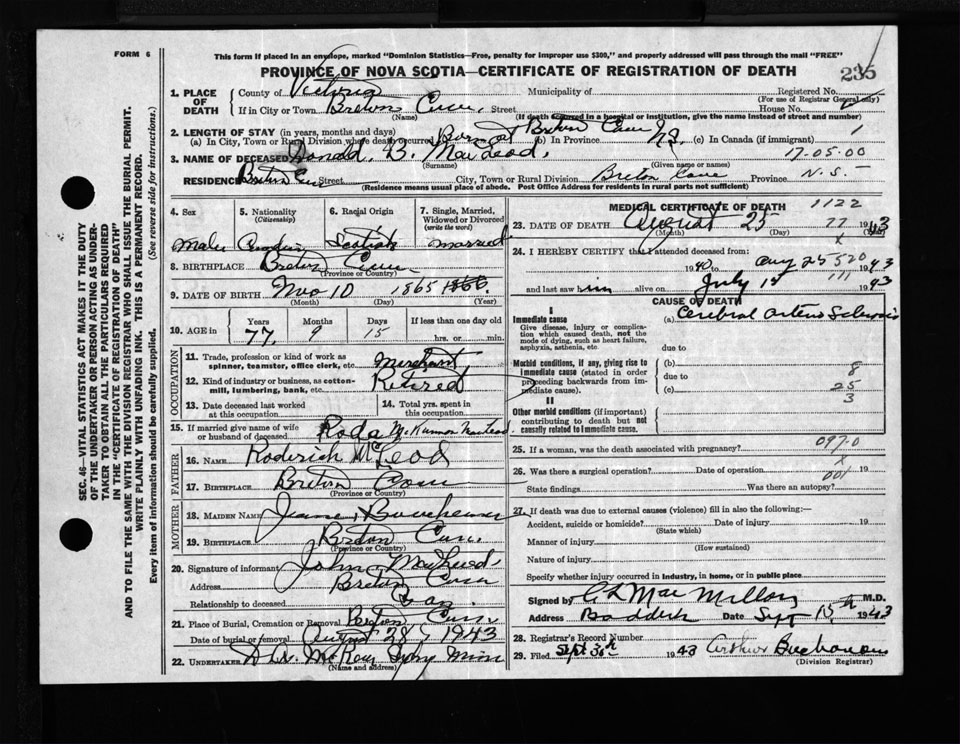 FORM 6
This form if placed in an envelope, marked "Dominion Statistics—Free, penalty for improper use $300," and properly addressed will pass through the mail "FREE"
PROVINCE OF NOVA SCOTIA—CERTIFICATE OF REGISTRATION OF DEATH
235
1. PLACE OF DEATH
County of Victoria Municipality of Registered No.
(For use of Registrar General only)
If in City or Town Breton Cove, Street House No.
(Name) (If death occurred in a hospital or institution, give the name instead of street and number)
2. LENGTH OF STAY (in years, months and days)
(a) In City, Town or Rural Division where death occurred Born at Breton Cove (b) In Province N.S. (c) In Canada (if immigrant) 1
3. NAME OF DECEASED Donald D. MacLeod. 17.05.00
(Surname) (Given name or names)
RESIDENCE Breton Cove Street City, Town or Rural Division Breton Cove Province N.S.
(Residence means usual place of abode. Post Office Address for residents in rural parts not sufficient)
4. Sex 5. Nationality (Citizenship) 6. Racial Origin 7. Single, Married, Widowed or Divorced (write the word)
Male Scotish Married
8. BIRTHPLACE Breton Cove
(Province or Country)
9. DATE OF BIRTH Nov 10 1865 1866
(Month) (Day) (Year)
10. AGE in Years Months Days If less than one day old
77 9 15 hrs. or min.
OCCUPATION
11. Trade, profession or kind of work as spinner, teamster, office clerk, etc. Merchant
12. Kind of industry or business, as cotton-mill, lumbering, bank, etc. Retired
13. Date deceased last worked at this occupation 14. Total yrs. spent in this occupation
15. If married give name of wife or husband of deceased Roda McKinnon MacLeod
FATHER
16. Name Roderick McLeod
17. Birthplace Breton Cove
(Province or Country)
MOTHER
18. Maiden Name
19. Birthplace Breton Cove
(Province or Country)
20. Signature of informant John MacLeod.
Address Breton Cove
Relationship to deceased
21. Place of Burial, Cremation or Removal Breton Cove
Date of burial or removal August 28, 1943
22. Undertaker
(Name and address)
MEDICAL CERTIFICATE OF DEATH 1122
23. DATE OF DEATH August 25 77 1943
(Month) (Day) (Year)
24. I HEREBY CERTIFY that I attended deceased from:
1940 to Aug 25 520 1943
and last saw him alive on July 15 111 1943
CAUSE OF DEATH
I
Immediate cause (a) Cerebral Arterio Sclerosis
Give disease, injury or complication which caused death, not the mode of dying, such as heart failure, asphyxia, asthenia, etc. due to
Morbid conditions, if any, giving rise to immediate cause (stated in order proceeding backwards from immediate cause). (b) 8
due to
(c) 25
3
II
Other morbid conditions (if important) contributing to death but not causally related to immediate cause.
25. If a woman, was the death associated with pregnancy? 097.0
26. Was there a surgical operation? Date of operation 19
State findings Was there an autopsy?
27. If death was due to external causes (violence) fill in also the following:—
Accident, suicide or homicide? Date of injury 19
(State which)
Manner of injury
(How sustained)
Nature of injury
Specify whether injury occurred in industry, in home, or in public place
Signed by C L MacMillan M.D.
Address Baddeck Date Sept 15th 1943
28. Registrar's Record Number
29. Filed Sept 30th 1943 Arthur Buchanan
(Division Registrar)
SEC. 46—VITAL STATISTICS ACT MAKES IT THE DUTY OF THE UNDERTAKER OR PERSON ACTING AS UNDERTAKER TO OBTAIN ALL THE PARTICULARS REQUIRED IN THE "CERTIFICATE OF REGISTRATION OF DEATH" AND TO FILE THE SAME WITH THE DIVISION REGISTRAR WHO SHALL ISSUE THE BURIAL PERMIT.
WRITE PLAINLY WITH UNFADING INK. THIS IS A PERMANENT RECORD.
Every item of information should be carefully supplied. (See reverse side for instructions.)